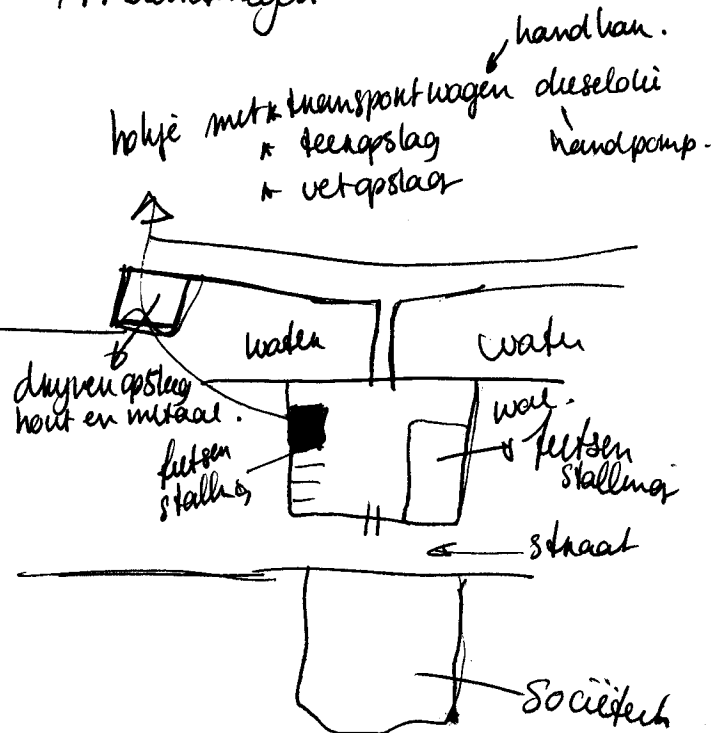 handkar.
hokje met * transportwagen dieselolie
* teeropslag
handpomp.
* vetopslag
water
water
drijven opslag
hout en metaal.
wal.
fietsen
stalling
fietsen
stalling
straat
Sociëteit